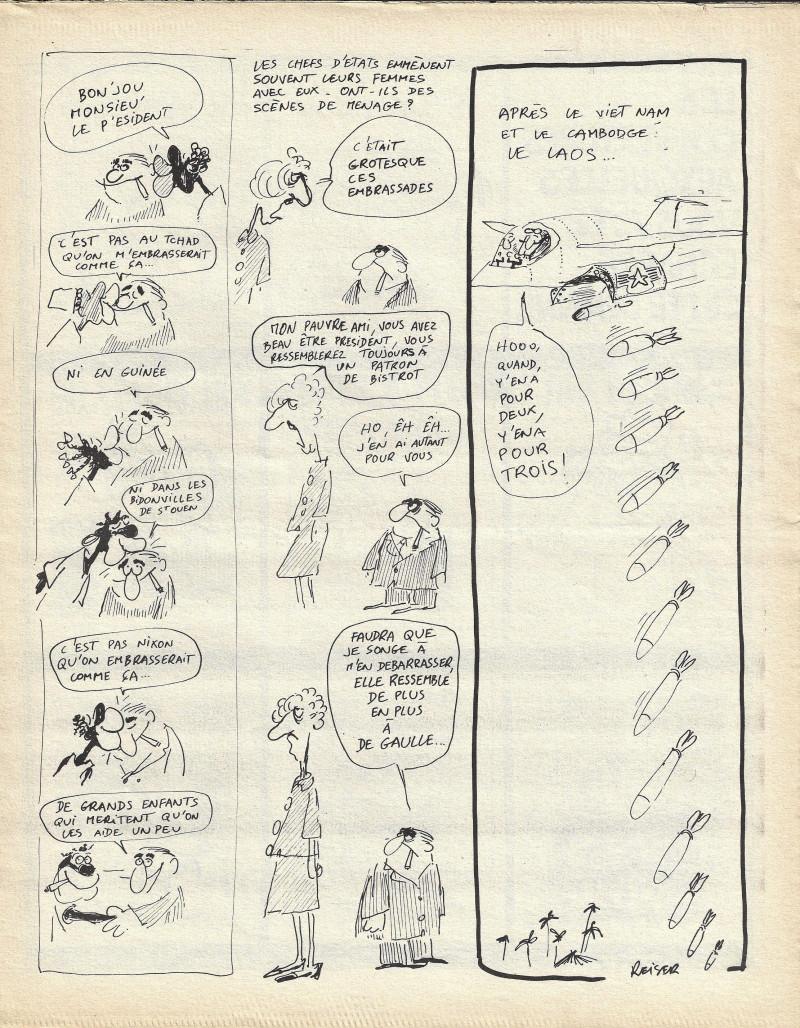 BON'JOU
MONSIEU'
LE P'ESIDENT
C'EST PAS AU TCHAD
QU'ON M'EMBRASSERAIT
COMME ÇA...
NI EN GUINÉE
NI DANS LES
BIDONVILLES
DE STOUEN
C'EST PAS NIXON
QU'ON EMBRASSERAIT
COMME ÇA...
DE GRANDS ENFANTS
QUI MERITENT QU'ON
LES AIDE UN PEU
LES CHEFS D'ETATS EMMÈNENT
SOUVENT LEURS FEMMES
AVEC EUX - ONT-ILS DES
SCÈNES DE MENAGE ?
C'ÉTAIT
GROTESQUE
CES
EMBRASSADES
MON PAUVRE AMI, VOUS AVEZ
BEAU ÊTRE PRESIDENT, VOUS
RESSEMBLEREZ TOUJOURS À
UN PATRON
DE BISTROT
HO, ÊH ÊH...
J'EN AI AUTANT
POUR VOUS
FAUDRA QUE
JE SONGE À
M'EN DEBARRASSER,
ELLE RESSEMBLE
DE PLUS
EN PLUS
À
DE GAULLE...
APRÈS LE VIET NAM
ET LE CAMBODGE :
LE LAOS...
HOOO,
QUAND,
Y'EN A
POUR
DEUX,
Y'EN A
POUR
TROIS !
REISER